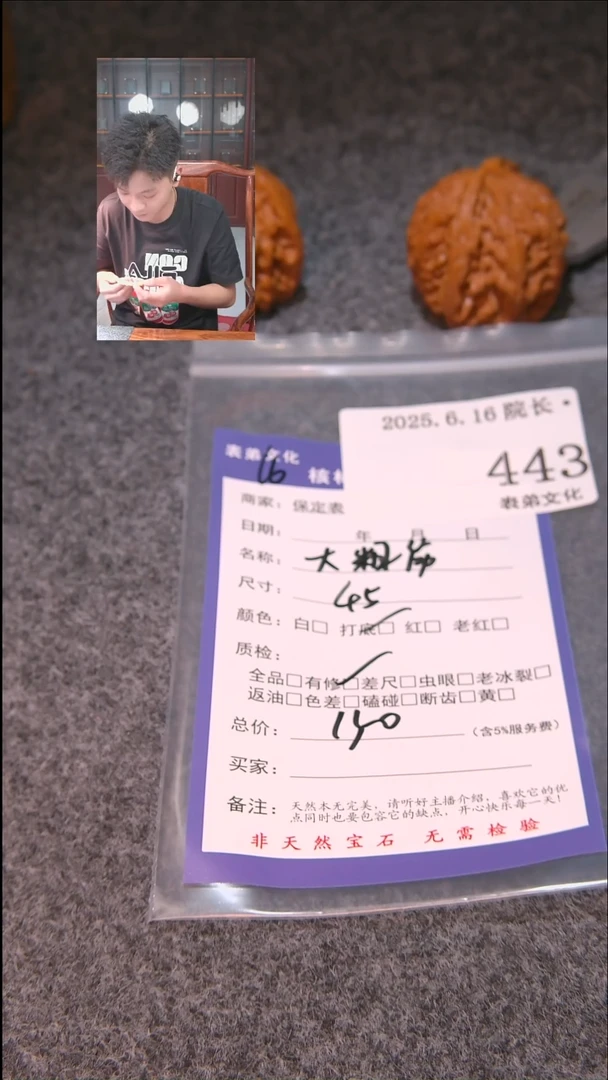 2025.6.16 院长
443
表弟文化
表弟文化
16
核桃
商家：保定表
日期： 年 月 日
名称：大粗筋
尺寸：45
颜色：白□ 打底□ 红□ 老红□
质检：
全品□有修□差尺□虫眼□老冰裂□
返油□色差□磕碰□断齿□黄□
总价： （含5%服务费）
买家：
备注：天然本无完美，请听好主播介绍，喜欢它的优
点同时也要包容它的缺点，开心快乐每一天！
非天然宝石 无需检验